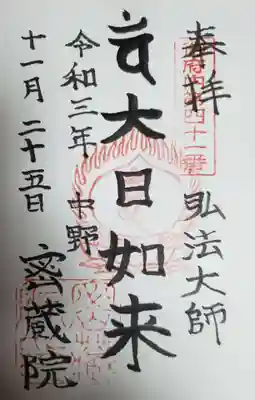 奉拝
弘法大師
四十一番
大日如来
令和三年
十一月二十五日
中野
密蔵院